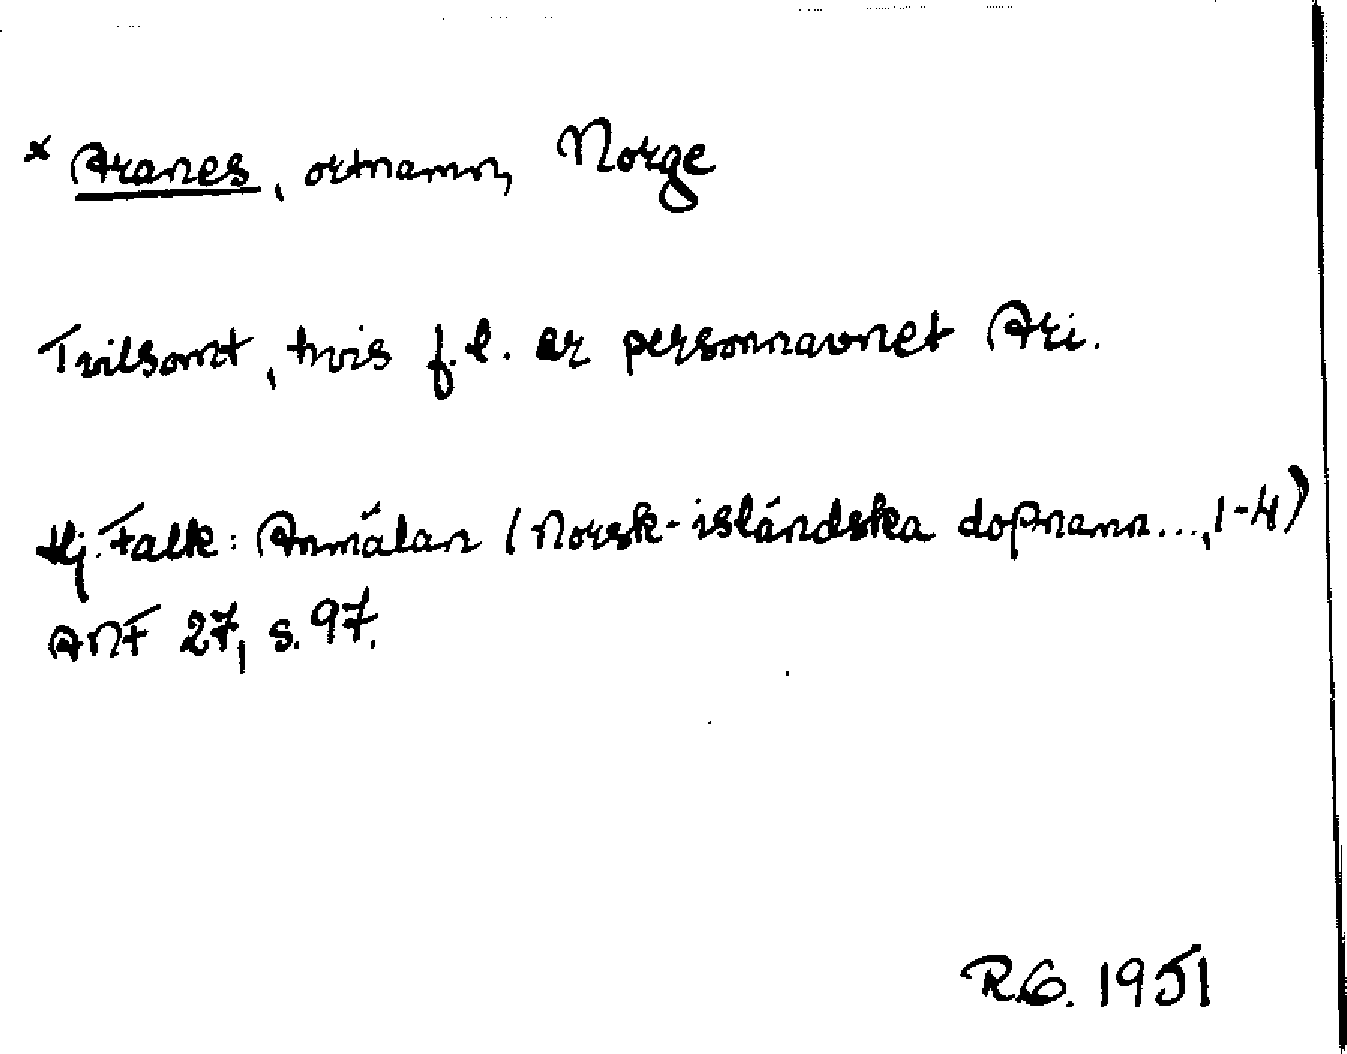 * Aranes, ortnamn, Norge
Tvilsomt, hvis f.l. er personnavnet Ari.
Hj. Falk: Anmälan (Norsk-isländska dopnamn..., 1-4)
ANF 27, s. 97.
R.G. 1951